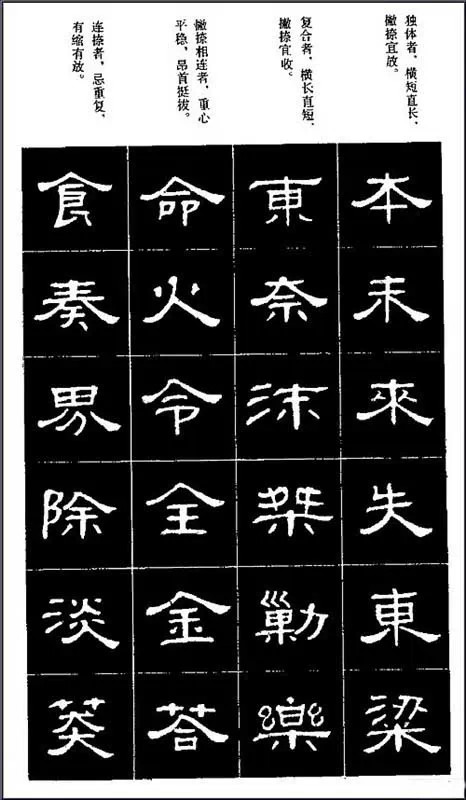 独体者，横短直长，
撇捺宜放。
复合者，横长直短，
撇捺宜收。
撇捺相连者，重心
平稳，昂首挺拔。
连捺者，忌重复，
有缩有放。
本未來失東梁
東奈沫桀勦樂
命火令全金荅
食奏界除淡